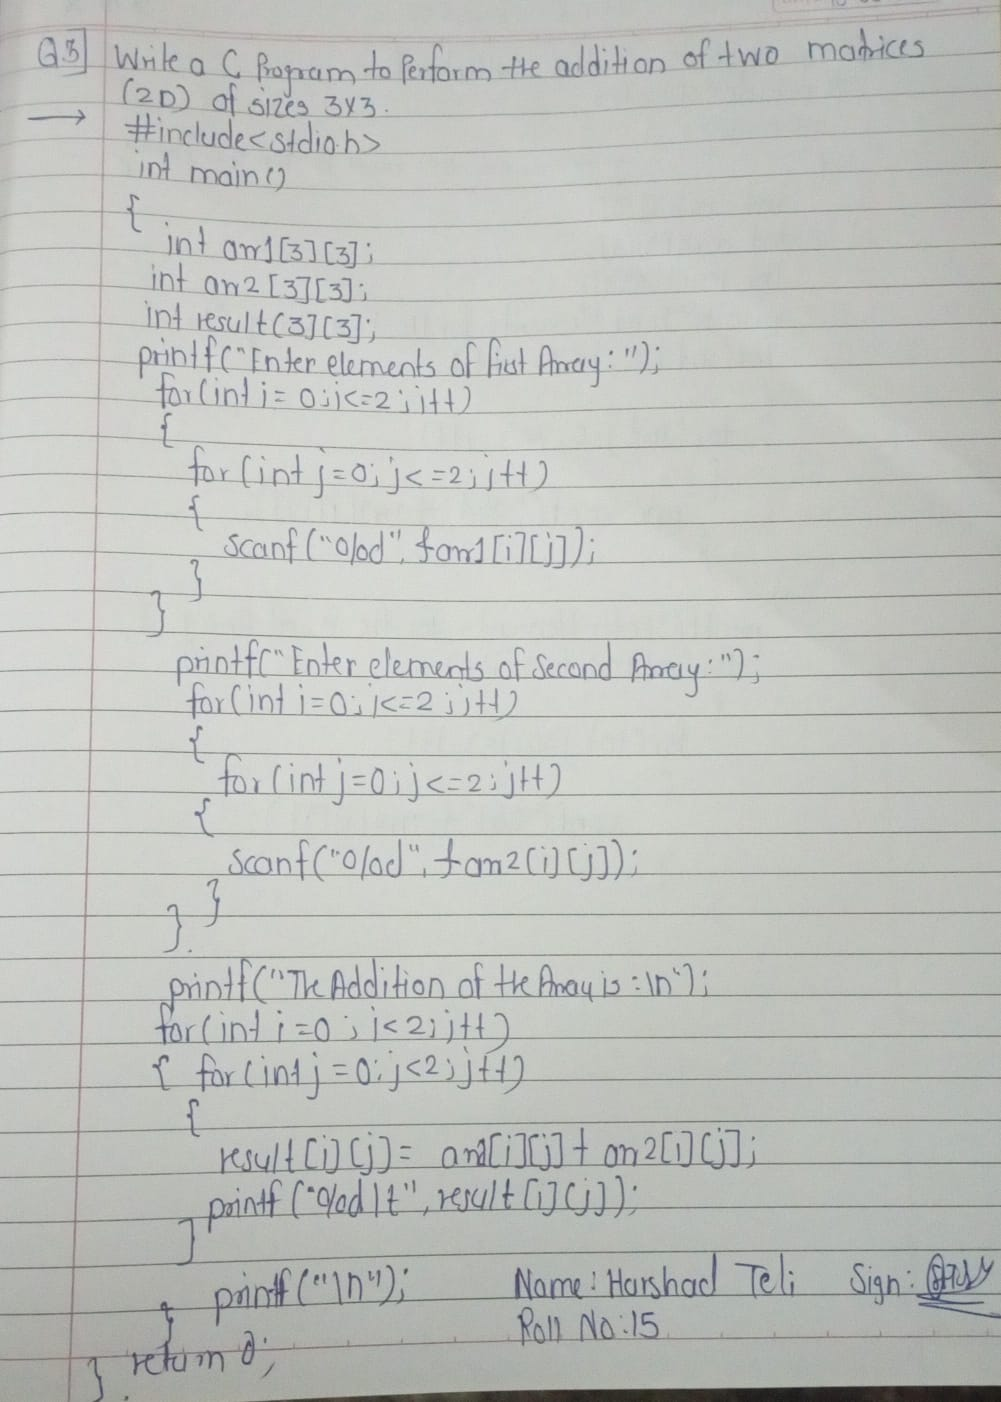 Q3] Write a C Program to Perform the addition of two matrices
(2D) of sizes 3x3.
→ #include<stdio.h>
int main()
{
int arr1[3][3];
int arr2[3][3];
int result[3][3];
printf("Enter elements of first Array:");
for(int i=0;i<=2;i++)
{
for(int j=0;j<=2;j++)
{
scanf("%d",&arr1[i][j]);
}
}
printf("Enter elements of Second Array:");
for(int i=0;i<=2;i++)
{
for(int j=0;j<=2;j++)
{
scanf("%d",&arr2[i][j]);
}
}
printf("The Addition of the Array is:\n");
for(int i=0;i<2;i++)
{ for(int j=0;j<2;j++)
{
result[i][j]= arr1[i][j]+arr2[i][j];
printf("%d\t",result[i][j]);
}
printf("\n"); Name: Harshad Teli Sign:
} Roll No:15
return 0;
}